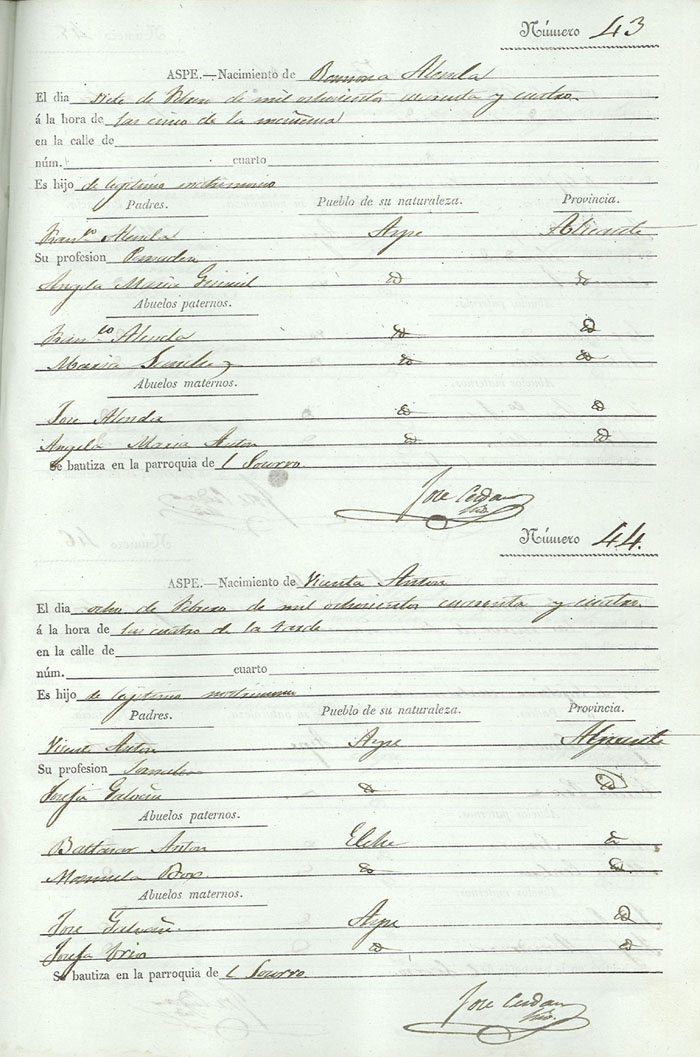 Número 43
ASPE.—Nacimiento de Ramona Alenda
El dia siete de Febrero de mil ochocientos cuarenta y cuatro
á la hora de las cinco de la mañana
en la calle de
núm. cuarto
Es hijo de legitimo matrimonio
Padres. Pueblo de su naturaleza. Provincia.
Fran.co Alenda Aspe Alicante
Su profesion
Angela Maria id id
Abuelos paternos.
Fran.co Alenda id id
Maria id id
Abuelos maternos.
Jose Alenda id id
Angela Maria Anton id id
Se bautiza en la parroquia de l Socorro
Jose Cerdan
Número 44.
ASPE.—Nacimiento de Vicenta Anton
El dia ocho de Febrero de mil ochocientos cuarenta y cuatro
á la hora de las cuatro de la tarde
en la calle de
núm. cuarto
Es hijo de legitimo matrimonio
Padres. Pueblo de su naturaleza. Provincia.
Vicente Anton Aspe Alicante
Su profesion Jornalero
Josefa Galvañ id id
Abuelos paternos.
Baltasar Anton Elche id
Manuela Brox id id
Abuelos maternos.
Jose Galvañ Aspe id
Josefa id id
Se bautiza en la parroquia de l Socorro
Jose Cerdan